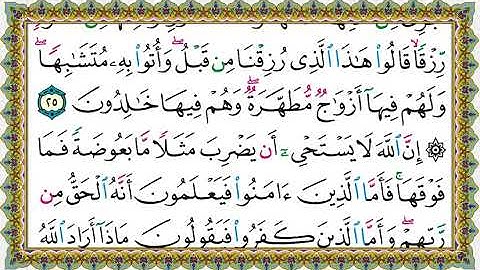 رِّزْقًا ۙ قَالُوا۟ هَٰذَا ٱلَّذِى رُزِقْنَا مِن قَبْلُ ۖ وَأُتُوا۟ بِهِۦ مُتَشَٰبِهًا ۖ
وَلَهُمْ فِيهَآ أَزْوَٰجٌ مُّطَهَّرَةٌ ۖ وَهُمْ فِيهَا خَٰلِدُونَ ٢٥
۞ إِنَّ ٱللَّهَ لَا يَسْتَحْىِۦٓ أَن يَضْرِبَ مَثَلًا مَّا بَعُوضَةً فَمَا
فَوْقَهَا ۚ فَأَمَّا ٱلَّذِينَ ءَامَنُوا۟ فَيَعْلَمُونَ أَنَّهُ ٱلْحَقُّ مِن
رَّبِّهِمْ ۖ وَأَمَّا ٱلَّذِينَ كَفَرُوا۟ فَيَقُولُونَ مَاذَآ أَرَادَ ٱللَّهُ